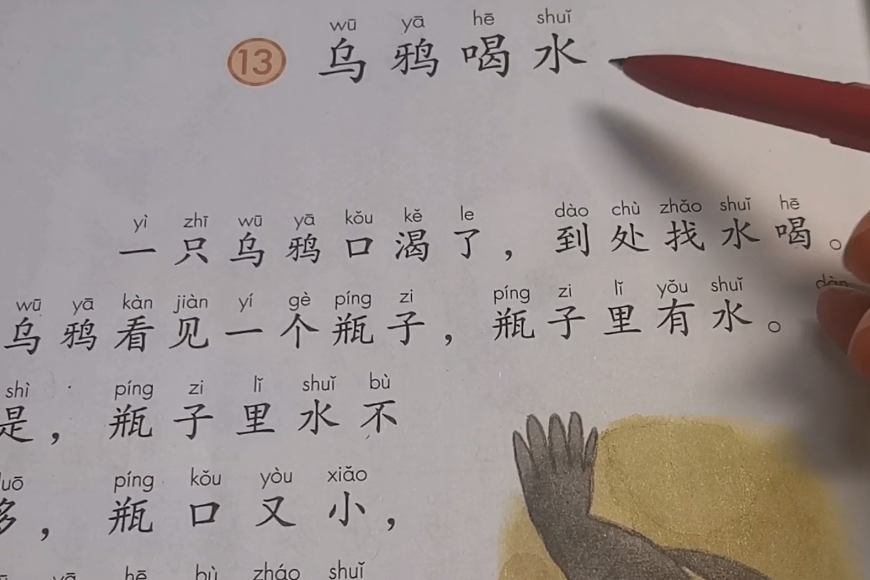 wū yā hē shuǐ
13 乌鸦喝水
yì zhī wū yā kǒu kě le dào chù zhǎo shuǐ hē
一只乌鸦口渴了，到处找水喝。
wū yā kàn jiàn yí gè píng zi píng zi lǐ yǒu shuǐ
乌鸦看见一个瓶子，瓶子里有水。
shì píng zi lǐ shuǐ bù
是，瓶子里水不
píng kǒu yòu xiǎo
，瓶口又小，
hē bù zháo shuǐ